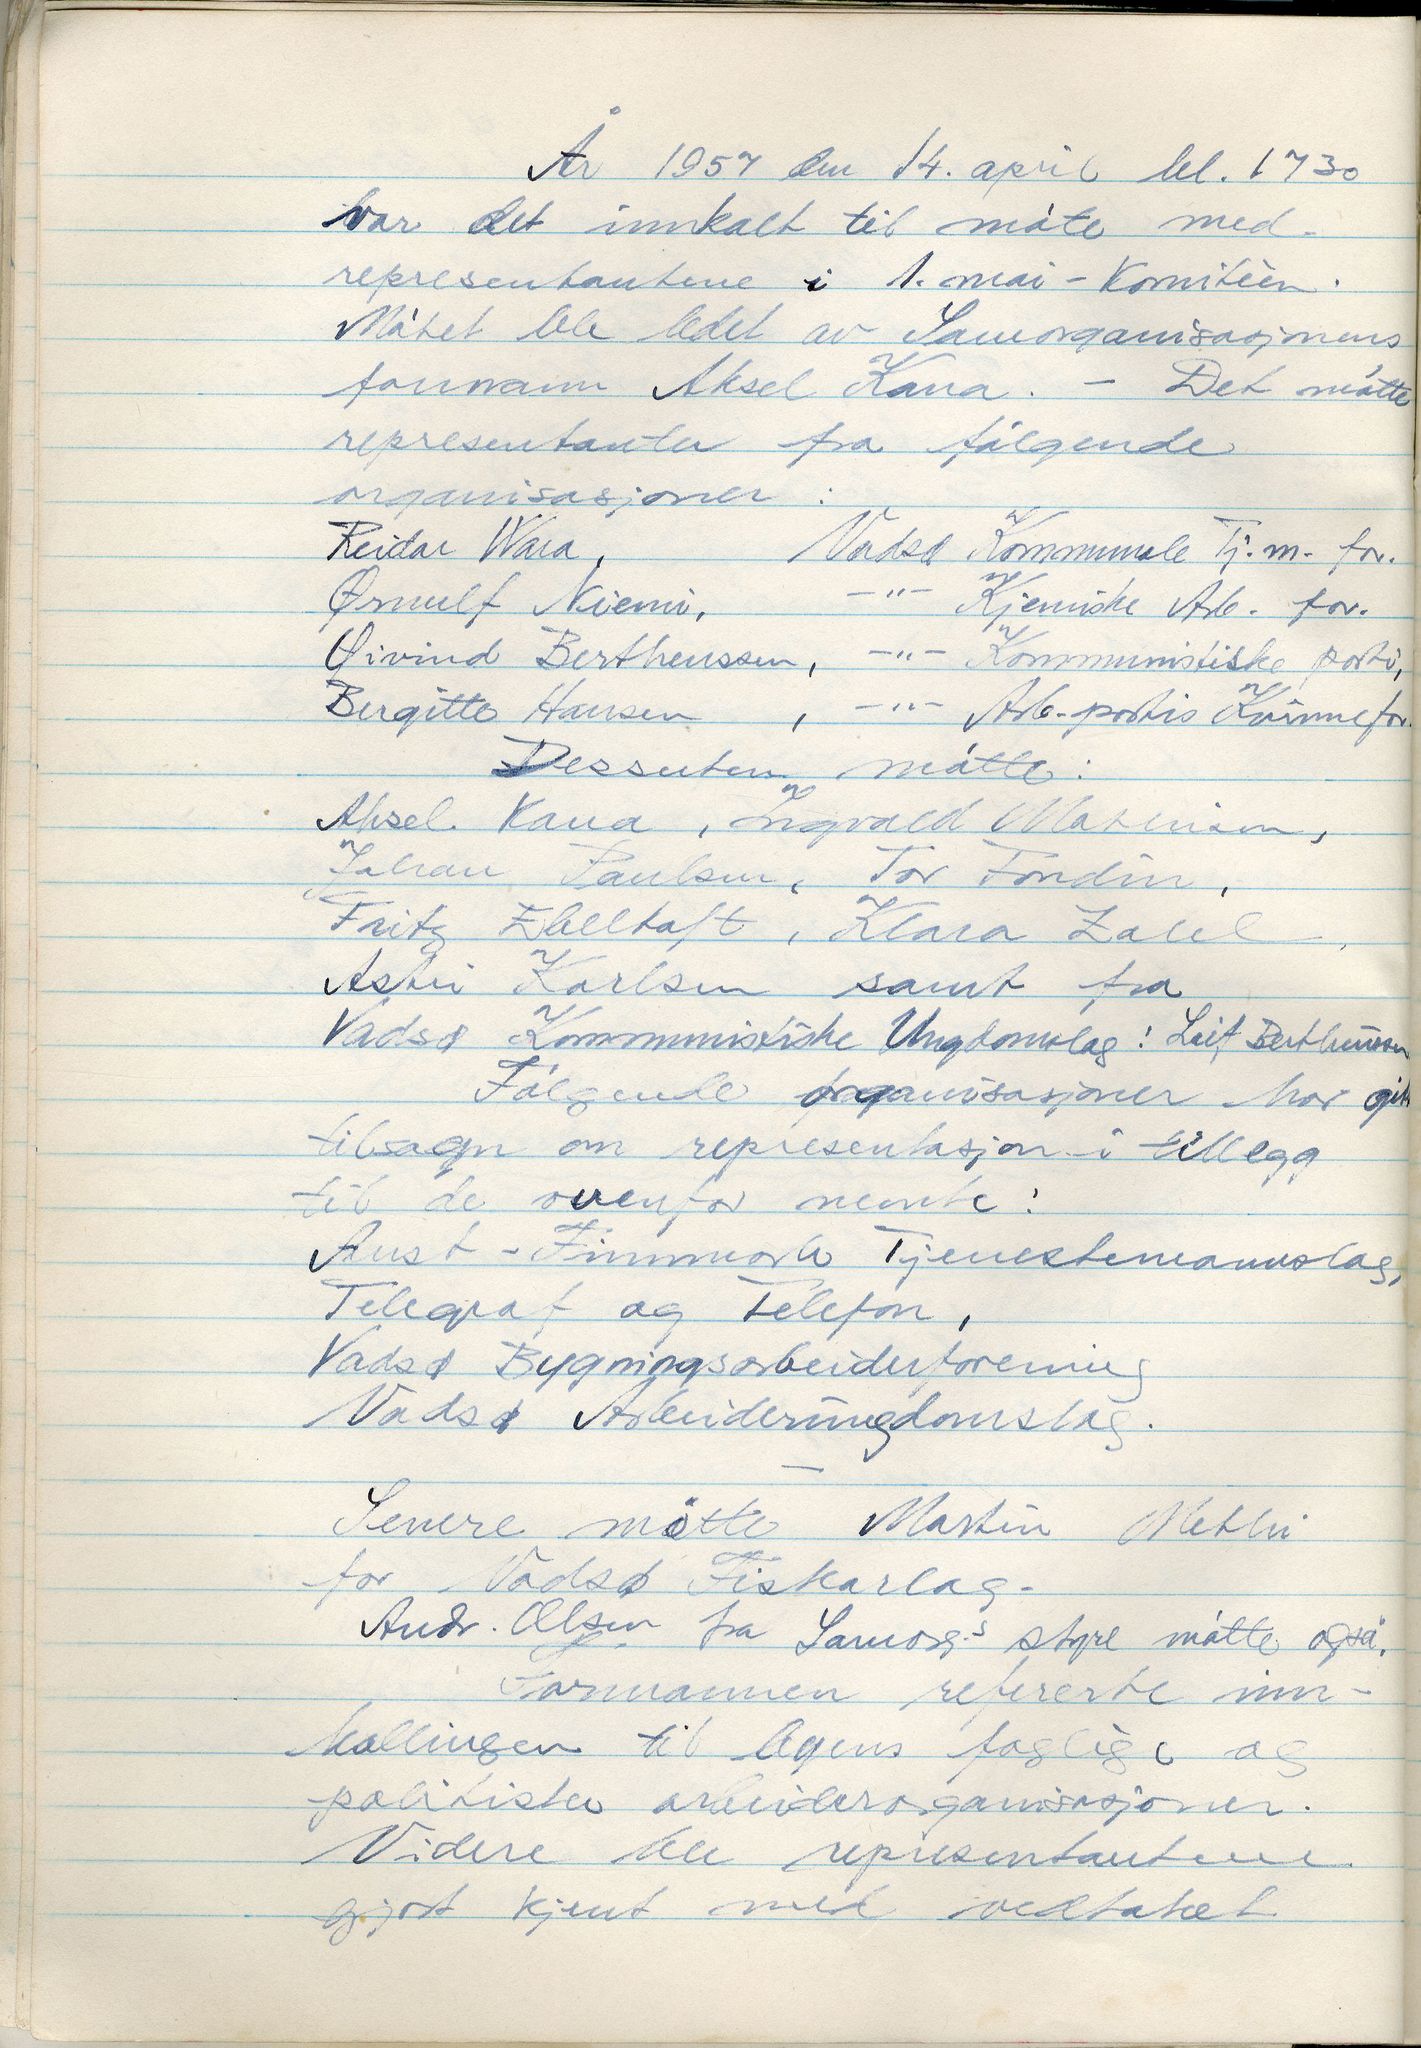 År 1957 den 14. april kl. 1730
var det innkalt til møte med
representantene i 1. mai-Komitéen.
Møtet ble ledet av Samorganisasjonens
formann Aksel Kana. - Det møtte
representanter fra følgende
organisasjoner:
Reidar Wara, Vadsø Kommunale Tj.m. for.
Ørnulf Niemi, -"- Kjemiske Arb. for.
Øivind Berthenssen, -"- Kommunistiske parti,
Bergitte Hansen, -"- Arb.-partis Kvinnefor.
Dessuten møtte:
Aksel Kana, Ingvald Mathisen,
Johan Paulsen, Tor Fondin,
Fritz Ebeltoft, Klara Zahl,
Astri Karlsen samt fra
Vadsø Kommunistiske Ungdomslag: Leif Berthenssen
Følgende organisasjoner har gitt
tilsagn om representasjon i tillegg
til de ovenfor nemte:
Aust-Finnmark Tjenestemannslag,
Telegraf og Telefon,
Vadsø Bygningsarbeiderforening
Vadsø Arbeiderungdomslag.
—
Senere møtte Martin Methi
for Vadsø Fiskarlag.
Andr. Olsen fra Samorg.s styre møtte også.
Formannen refererte inn-
kallingen til byens faglige og
politiske arbeiderorganisasjoner.
Videre ble representantene
gjort kjent med vedtaket